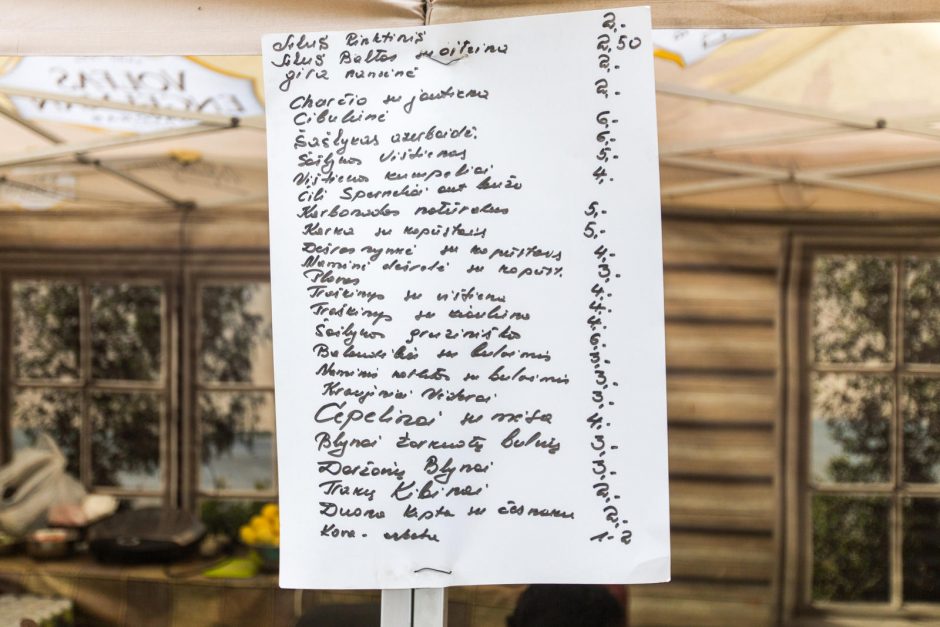 VOLFAS
ENGELMAN
Alus Rinktinis 2.-
Alus Baltas su citrina 2,50
gira naminė 2.-
Charčio su jautiena 2.-
Cibulinė
Šašlykas azerbaidž. 6.-
Šašlykas vištienos 6.-
Vištienos kumpeliai 5.-
Čili Sparneliai ant laužo 4.-
Karbonadas natūralus
Karka su kopūstais 5,-
Dešros rynkė su kopūstais 5.-
Naminė dešrelė su kopūst. 4,-
Plovas 3.-
Troškinys su vištiena 4.-
Troškinys su kiauliena 4.-
Šašlykas gruziniško 6.-
Balandėliai su bulvėmis 3.-
Naminis kotletas su bulvėmis 3.-
Kraujiniai Vėdarai 3,-
Cepelinai su mėsa 4.-
Blynai žarnokų bulvių 3.-
Daržovių Blynai 3.-
Trakų Kibinai 2.-
Duona kepta su česnaku 2,-
Kava - arbata 1-2